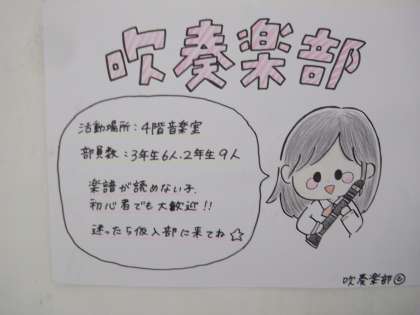 吹奏楽部
活動場所：4階音楽室
部員数：3年生6人.2年生9人
楽譜が読めない子.
初心者でも大歓迎!!
迷ったら仮入部に来てね☆
吹奏楽部②